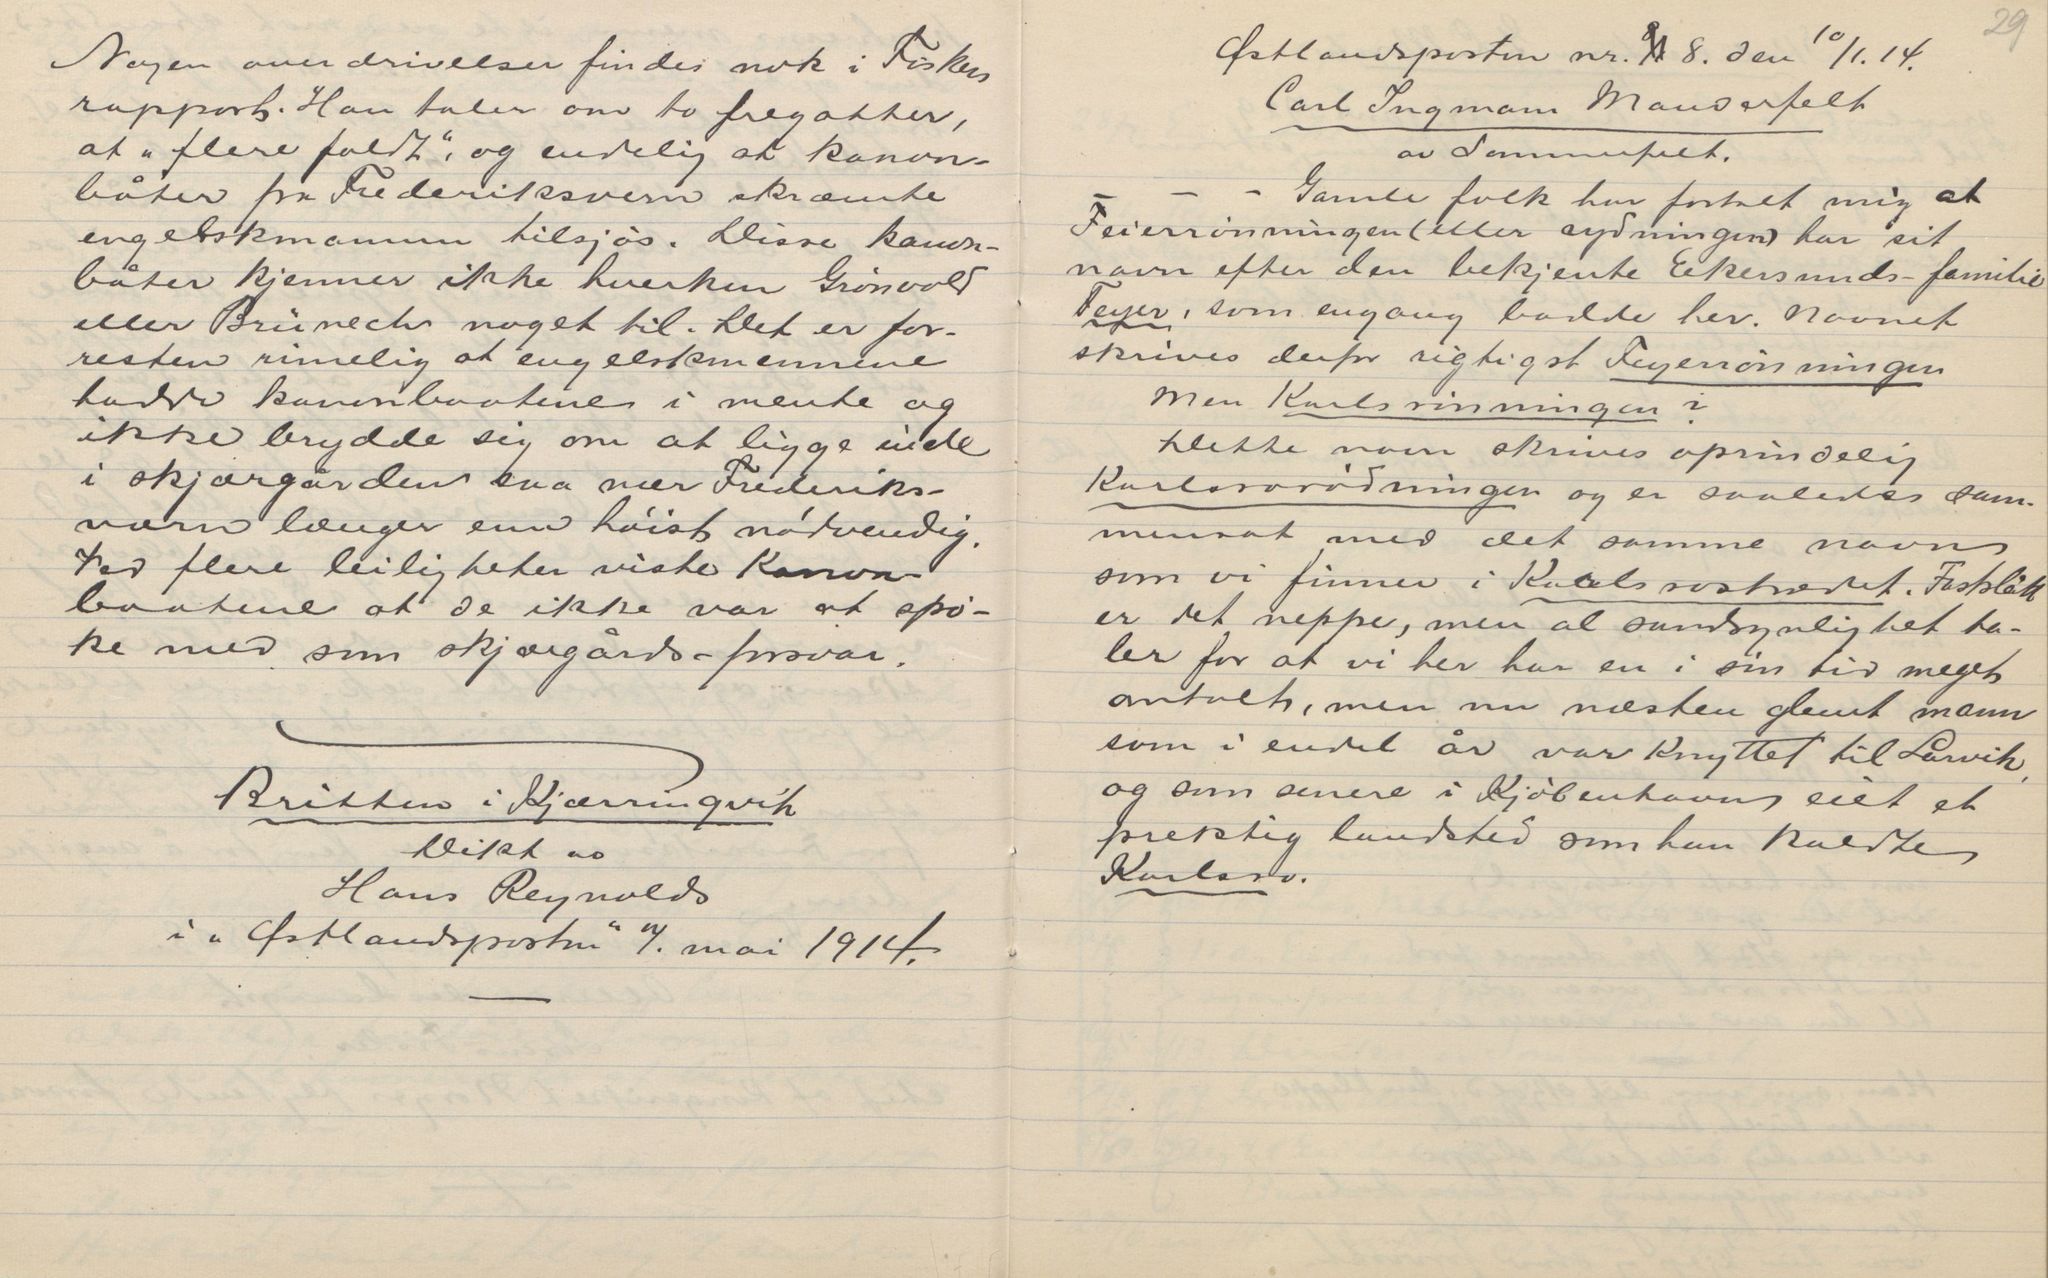 Nogen overdrivelser findes nok i Fiskers
rapport. Han taler om to fregatter,
at „flere faldt“, og endelig at kanon-
båter fra Frederiksvern skræmte
engelskmannen tilsjøs. Disse kanon-
båter kjenner ikke hverken Grönvold
eller Brünech noget til. Det er for-
resten rimelig at engelskmennene
hadde kanonbaatene i mente og
ikke brydde sig om at ligge inde
i skjærgården saa nær Frederiks-
værn længer enn höist nödvendig.
Ved flere leiligheter viste Kanon-
baatene at de ikke var at spö-
ke med som skjærgårds-forsvar.
Britten i Kjærringvik
Dikt av
Hans Reynolds
i „Østlandsposten“ mai 1914.
29
Østlandsposten nr. 8. den 10/1. 14.
Carl Ingmann Manderfelt
av Sommerfelt.
– – – Gamle folk har fortalt mig at
Feierrönningen (eller rydningen) har sit
navn efter den bekjente Eekersunds-familie
Feyer, som engang bodde her. Navnet
skrives derfor rigtigst Feyerrönningen
Men Karlsrönningen?
Dette navn skrives oprindelig
Karlsrorödningen og er saaledes sam-
mensat med det samme navn
som vi finner i Karlsrostrædet. Fastslått
er det neppe, men al sandsynlighet ta-
ler for at vi her har en i sin tid meget
omtalt, men nu næsten glemt mann
som i endel år var knyttet til Larvik,
og som senere i Kjöbenhavn eiet et
prektig landsted som han kaldte
Karlsro.